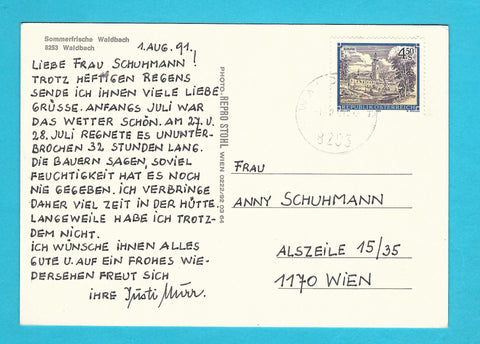 Sommerfrische Waldbach
8253 Waldbach
1. AUG. 91.
LIEBE FRAU SCHUHMANN!
TROTZ HEFTIGEN REGENS
SENDE ICH IHNEN VIELE LIEBE
GRÜSSE. ANFANGS JULI WAR
DAS WETTER SCHÖN. AM 27. U.
28. JULI REGNETE ES UNUNTER-
BROCHEN 32 STUNDEN LANG.
DIE BAUERN SAGEN, SOVIEL
FEUCHTIGKEIT HAT ES NOCH
NIE GEGEBEN. ICH VERBRINGE
DAHER VIEL ZEIT IN DER HÜTTE.
LANGEWEILE HABE ICH TROTZ-
DEM NICHT.
ICH WÜNSCHE IHNEN ALLES
GUTE U. AUF EIN FROHES WIE-
DERSEHEN FREUT SICH
IHRE
PHOTO: REPRO STOHL WIEN 0222/92 03 64
4.50
REPUBLIK ÖSTERREICH
FRAU
ANNY SCHUHMANN
ALSZEILE 15/35
1170 WIEN